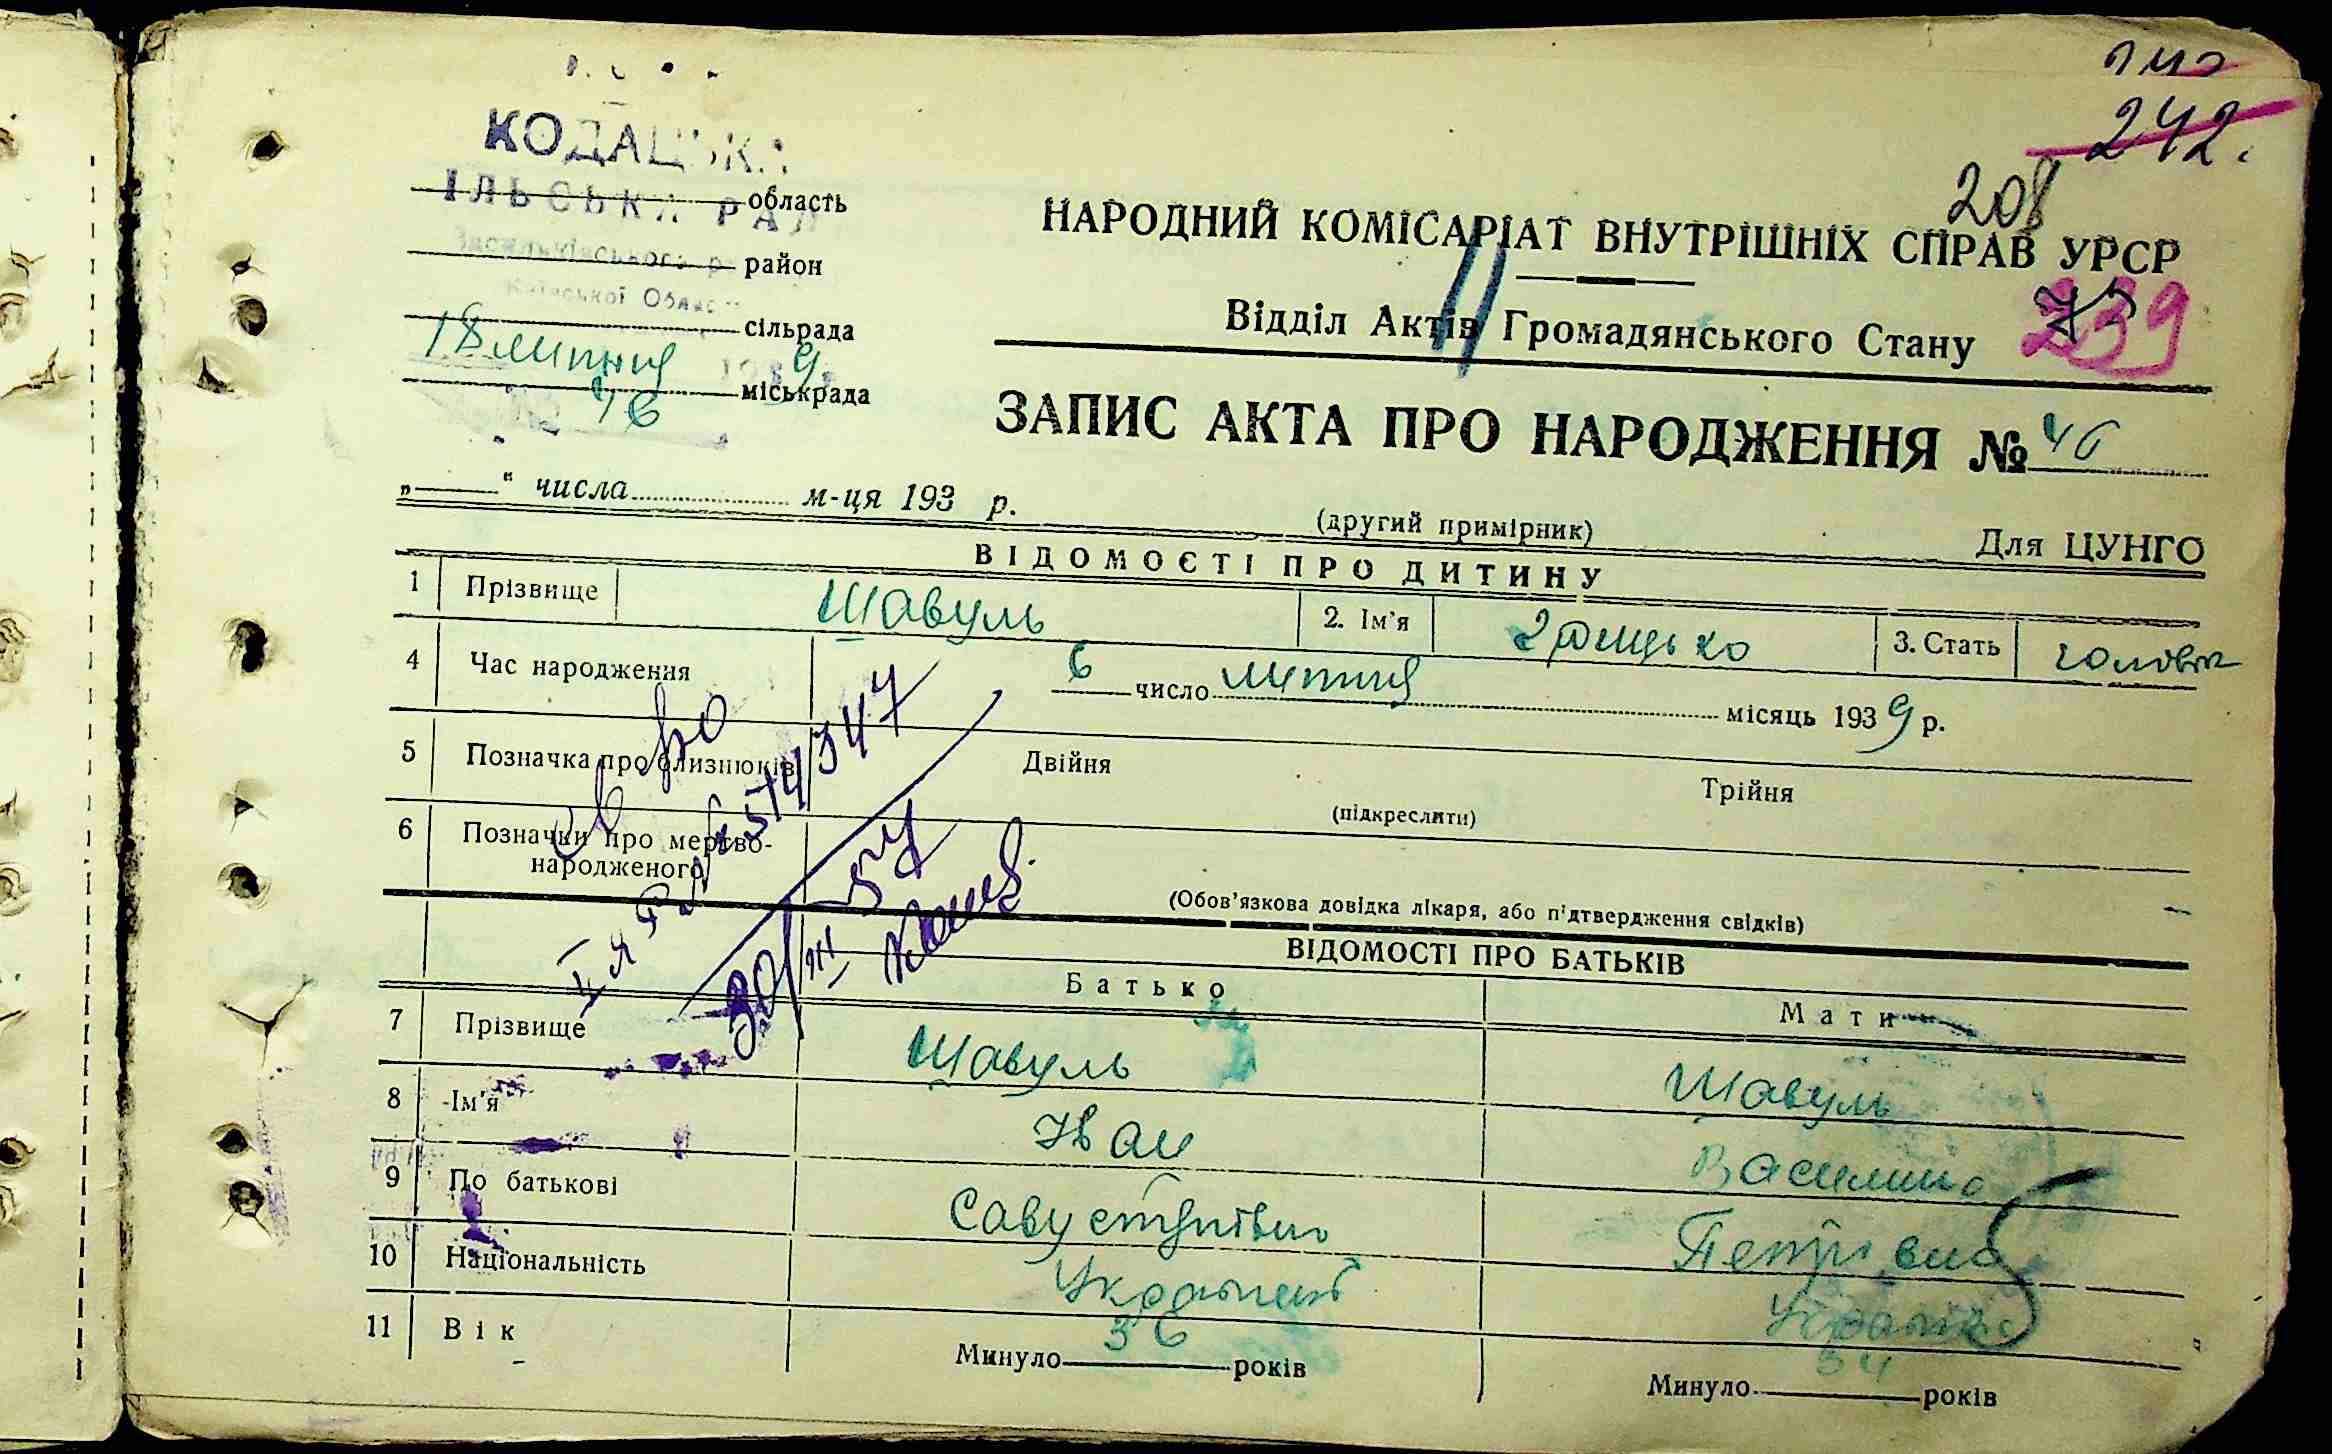 242.
208
КОДАЦЬКА
ІЛЬСЬКА РАД
область
Васильківського р
район
Київської Област
сільрада
18 липня 1939 р.
міськрада
46
НАРОДНИЙ КОМІСАРІАТ ВНУТРІШНІХ СПРАВ УРСР
Відділ Актів Громадянського Стану
239
75
ЗАПИС АКТА ПРО НАРОДЖЕННЯ № 46
„ “ числа м-ця 193 р.
(другий примірник)
Для ЦУНГО
ВІДОМОСТІ ПРО ДИТИНУ
1 Прізвище Шавуль 2. Ім'я Грицько 3. Стать головік
4 Час народження 6 число липня місяць 1939 р.
5 Позначка про близнюків Двійня Трійня
(підкреслити)
6 Позначки про мертво-
народженого
(Обов'язкова довідка лікаря, або підтвердження свідків)
ВІДОМОСТІ ПРО БАТЬКІВ
Батько Мати
7 Прізвище Шавуль Шавуль
8 Ім'я Іван Василина
9 По батькові Петрівна
10 Національність Українець
11 Вік Минуло 36 років Минуло 34 років